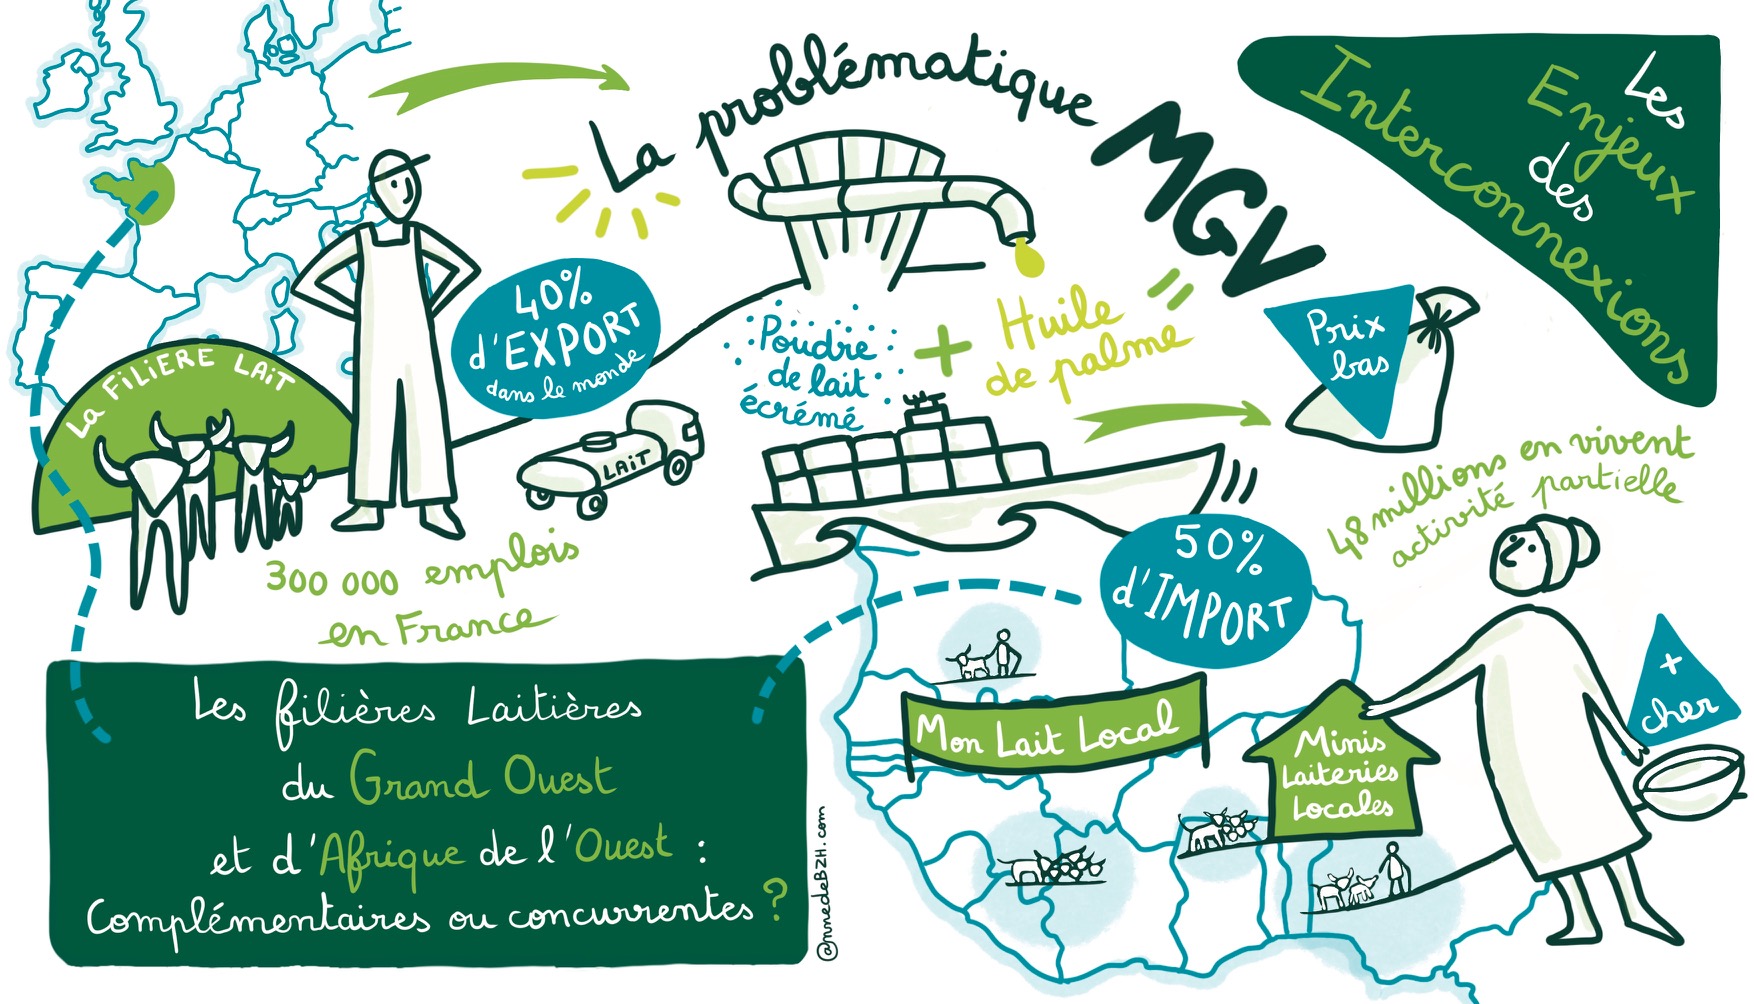 La problématique MGV
Les
Enjeux
des
Interconnexions
La FiLiÈRE LAiT
40%
d'EXPORT
dans le monde
LAiT
300 000 emplois
en France
Poudre
de lait
écrémé
+
Huile
de palme
=
Prix
bas
48 millions en vivent
activité partielle
50%
d'IMPORT
+
cher
Mon Lait Local
Minis
Laiteries
Locales
Les filières Laitières
du Grand Ouest
et d'Afrique de l'Ouest :
Complémentaires ou concurrentes ?
@nnedeBZH.com